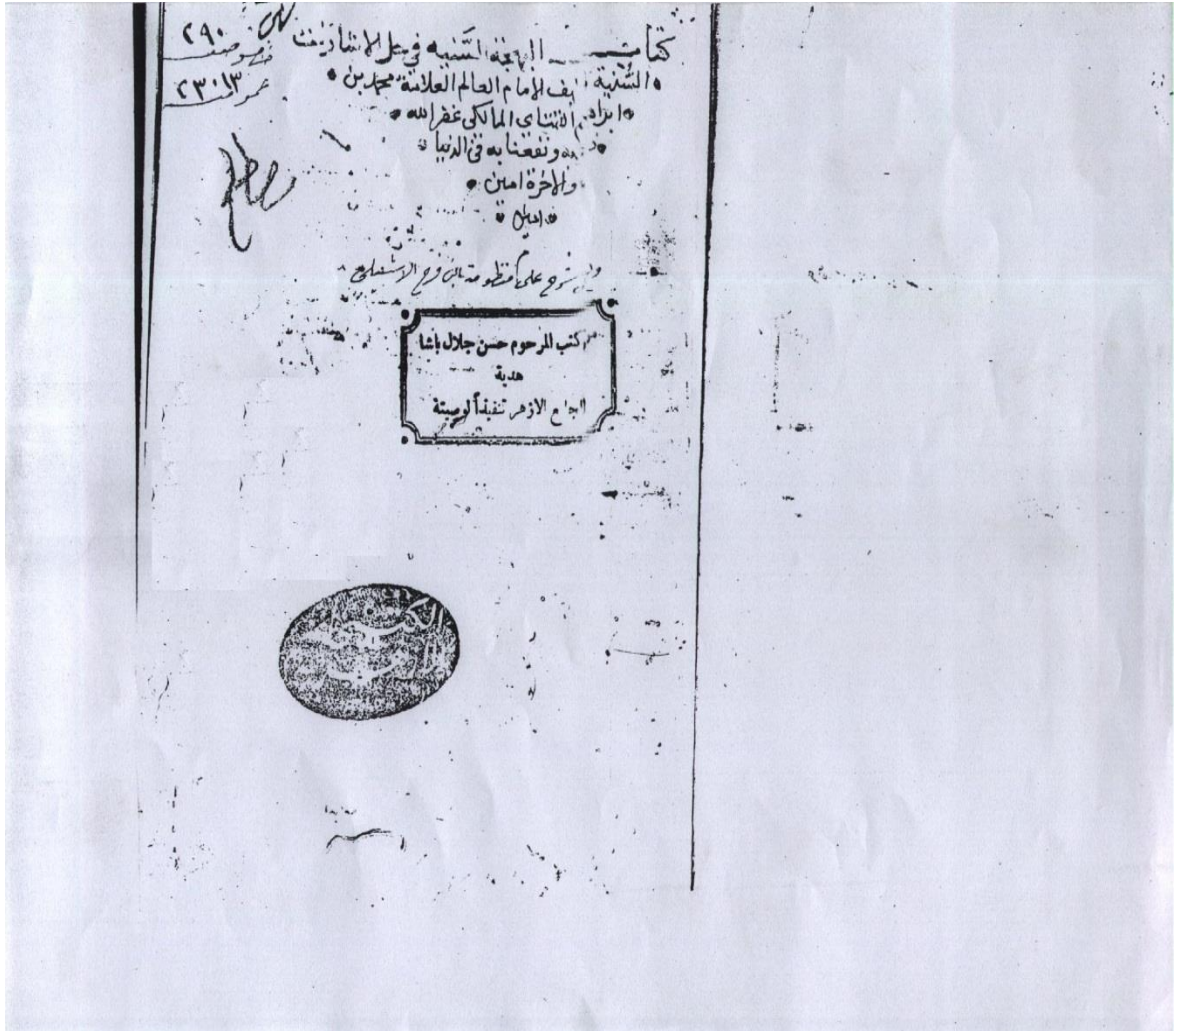 ٢٩٠
خصوصية
٢٣٠١٣
عمومية
كتاب البهجة السنية في حل الاشارات
السنية يف الامام العالم العلامة محمد بن
ابراهيم التتاى المالكى غفر الله
له ونفعنا به في الدنيا
والاخرة امين
امين
شرح على منظومة ابن فرح الاشبيلي
من كتب المرحوم حسن جلال باشا
هدية
الجامع الازهر تنفيذاً لوصيته